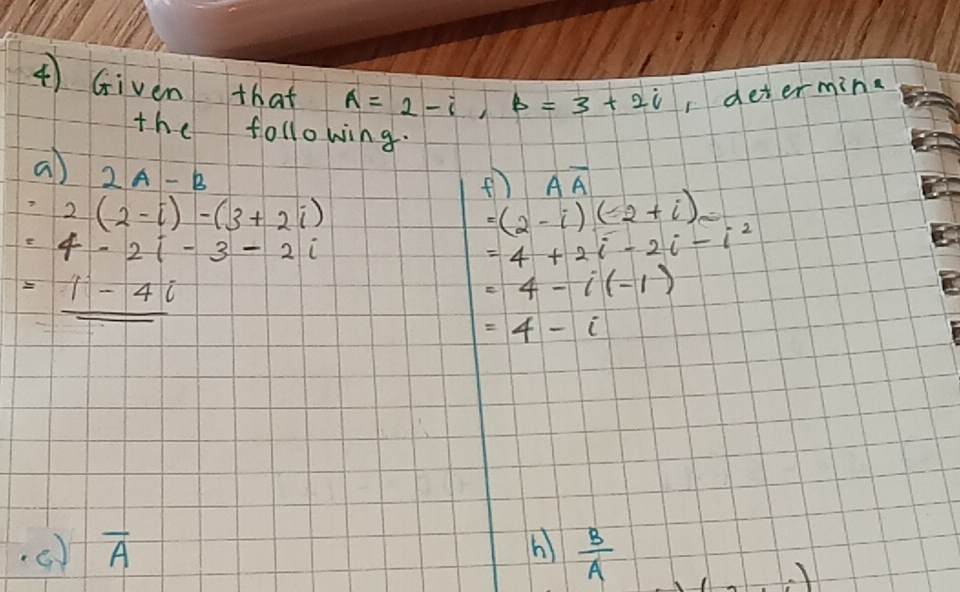 4) Given that A = 2 - i, B = 3 + 2i, determine
the following.
a) 2A - B
= 2(2-i) - (3 + 2i)
= 4 - 2i - 3 - 2i
= 1 - 4i
f) AĀ
= (2 - i)(2 + i)
= 4 + 2i - 2i - i²
= 4 - i(-1)
= 4 - i
c) Ā
h) B/A